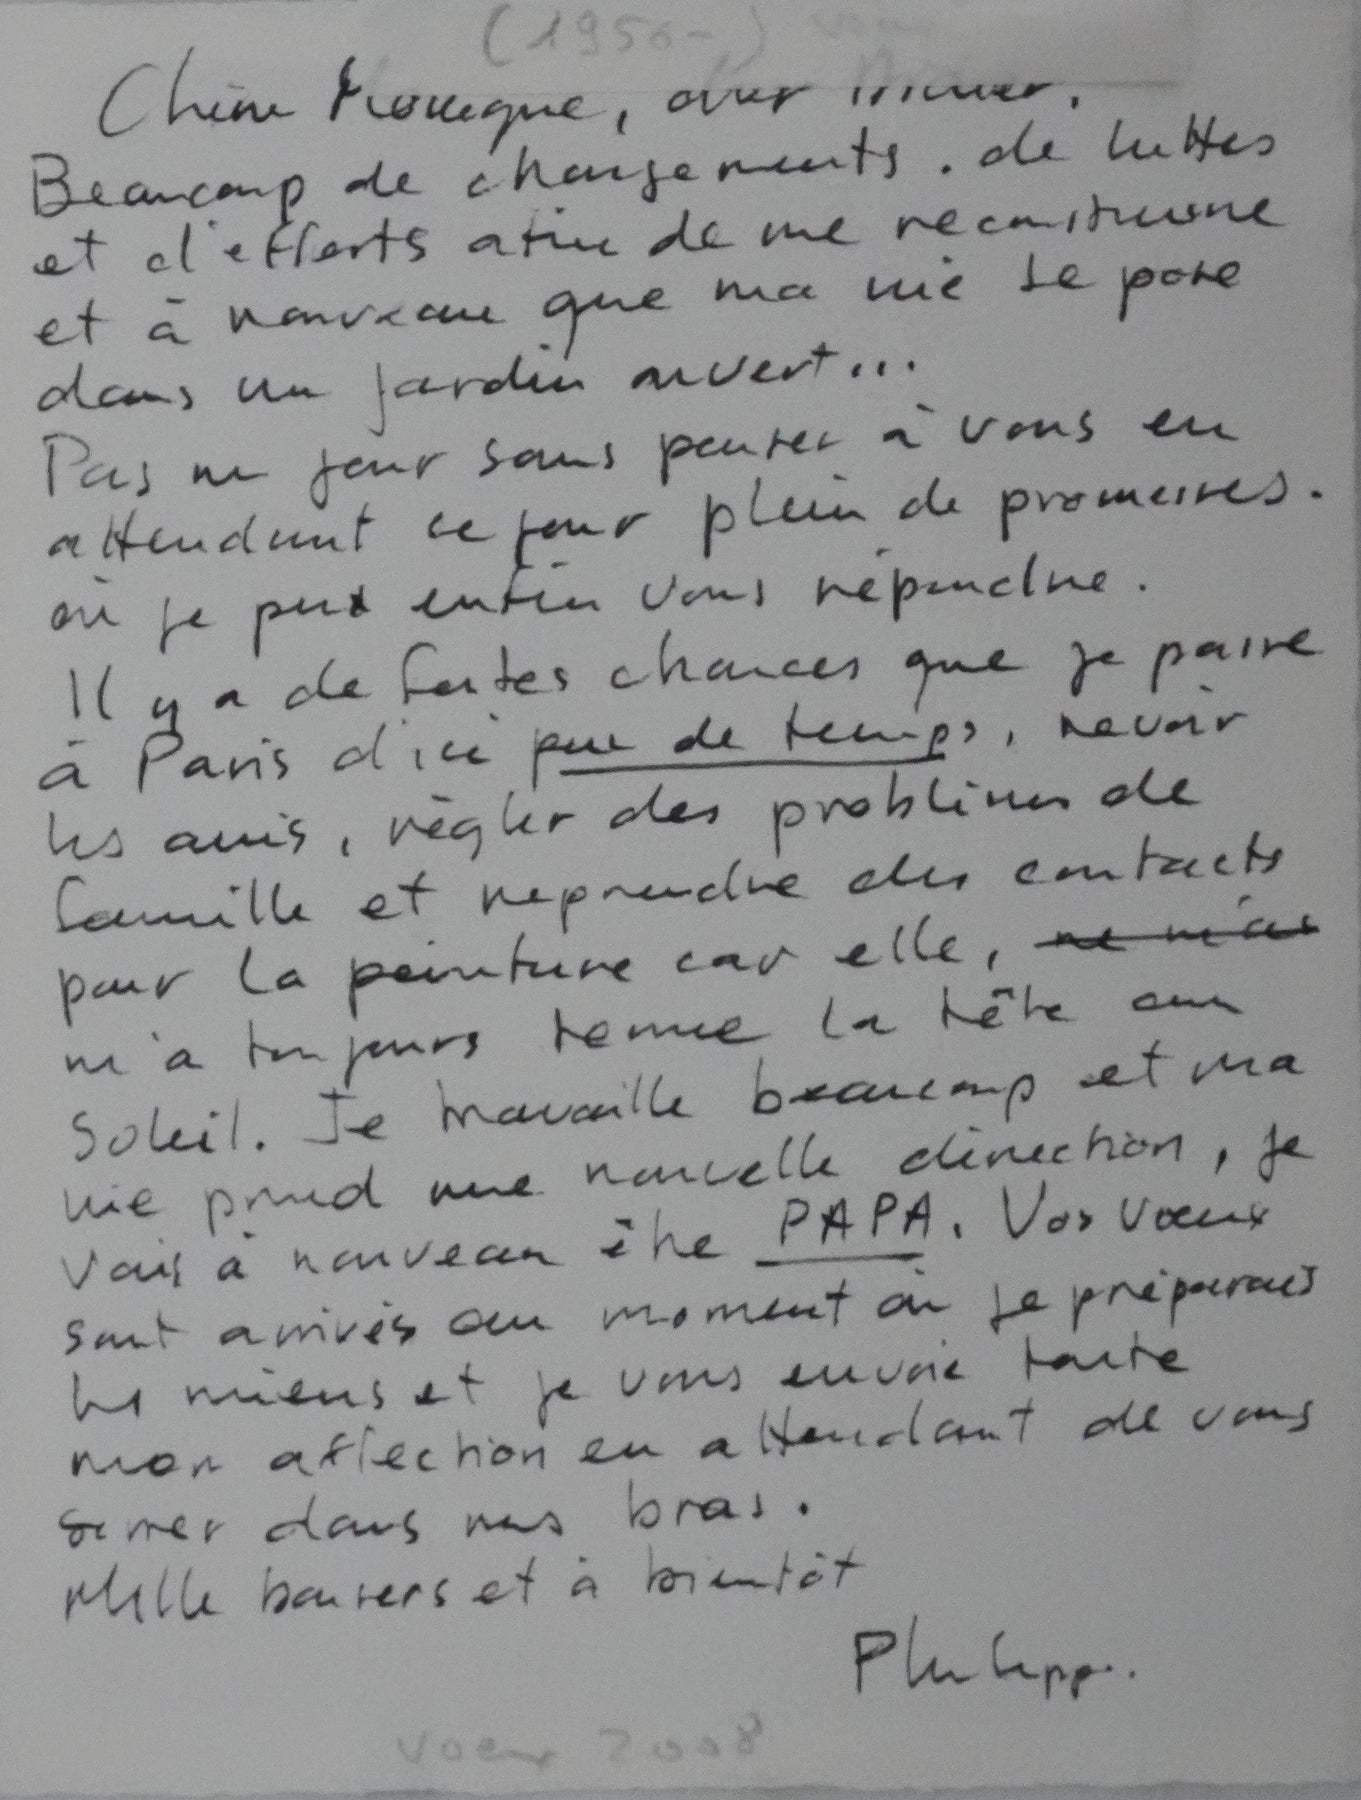 (1956-)
Chère Monique, cher
Beaucoup de changements. de luttes
et d'efforts afin de me reconstruire
et à nouveau que ma vie se pose
dans un jardin ouvert...
Pas un jour sans penser à vous en
attendant ce jour plein de promesses.
où je put enfin vous répondre.
Il y a de fortes chances que je passe
à Paris d'ici peu de temps, revoir
les amis, règler des problèmes de
famille et reprendre des contacts
pour la peinture car elle,
m'a toujours tenue la tête au
Soleil. Je travaille beaucoup et ma
vie prend une nouvelle direction, je
vais à nouveau être PAPA. Vos vœux
sont arrivés au moment où je préparais
les miens et je vous envoie toute
mon affection en attendant de vous
serrer dans nos bras.
Mille baisers et à bientôt
Philippe.
voeux 2008